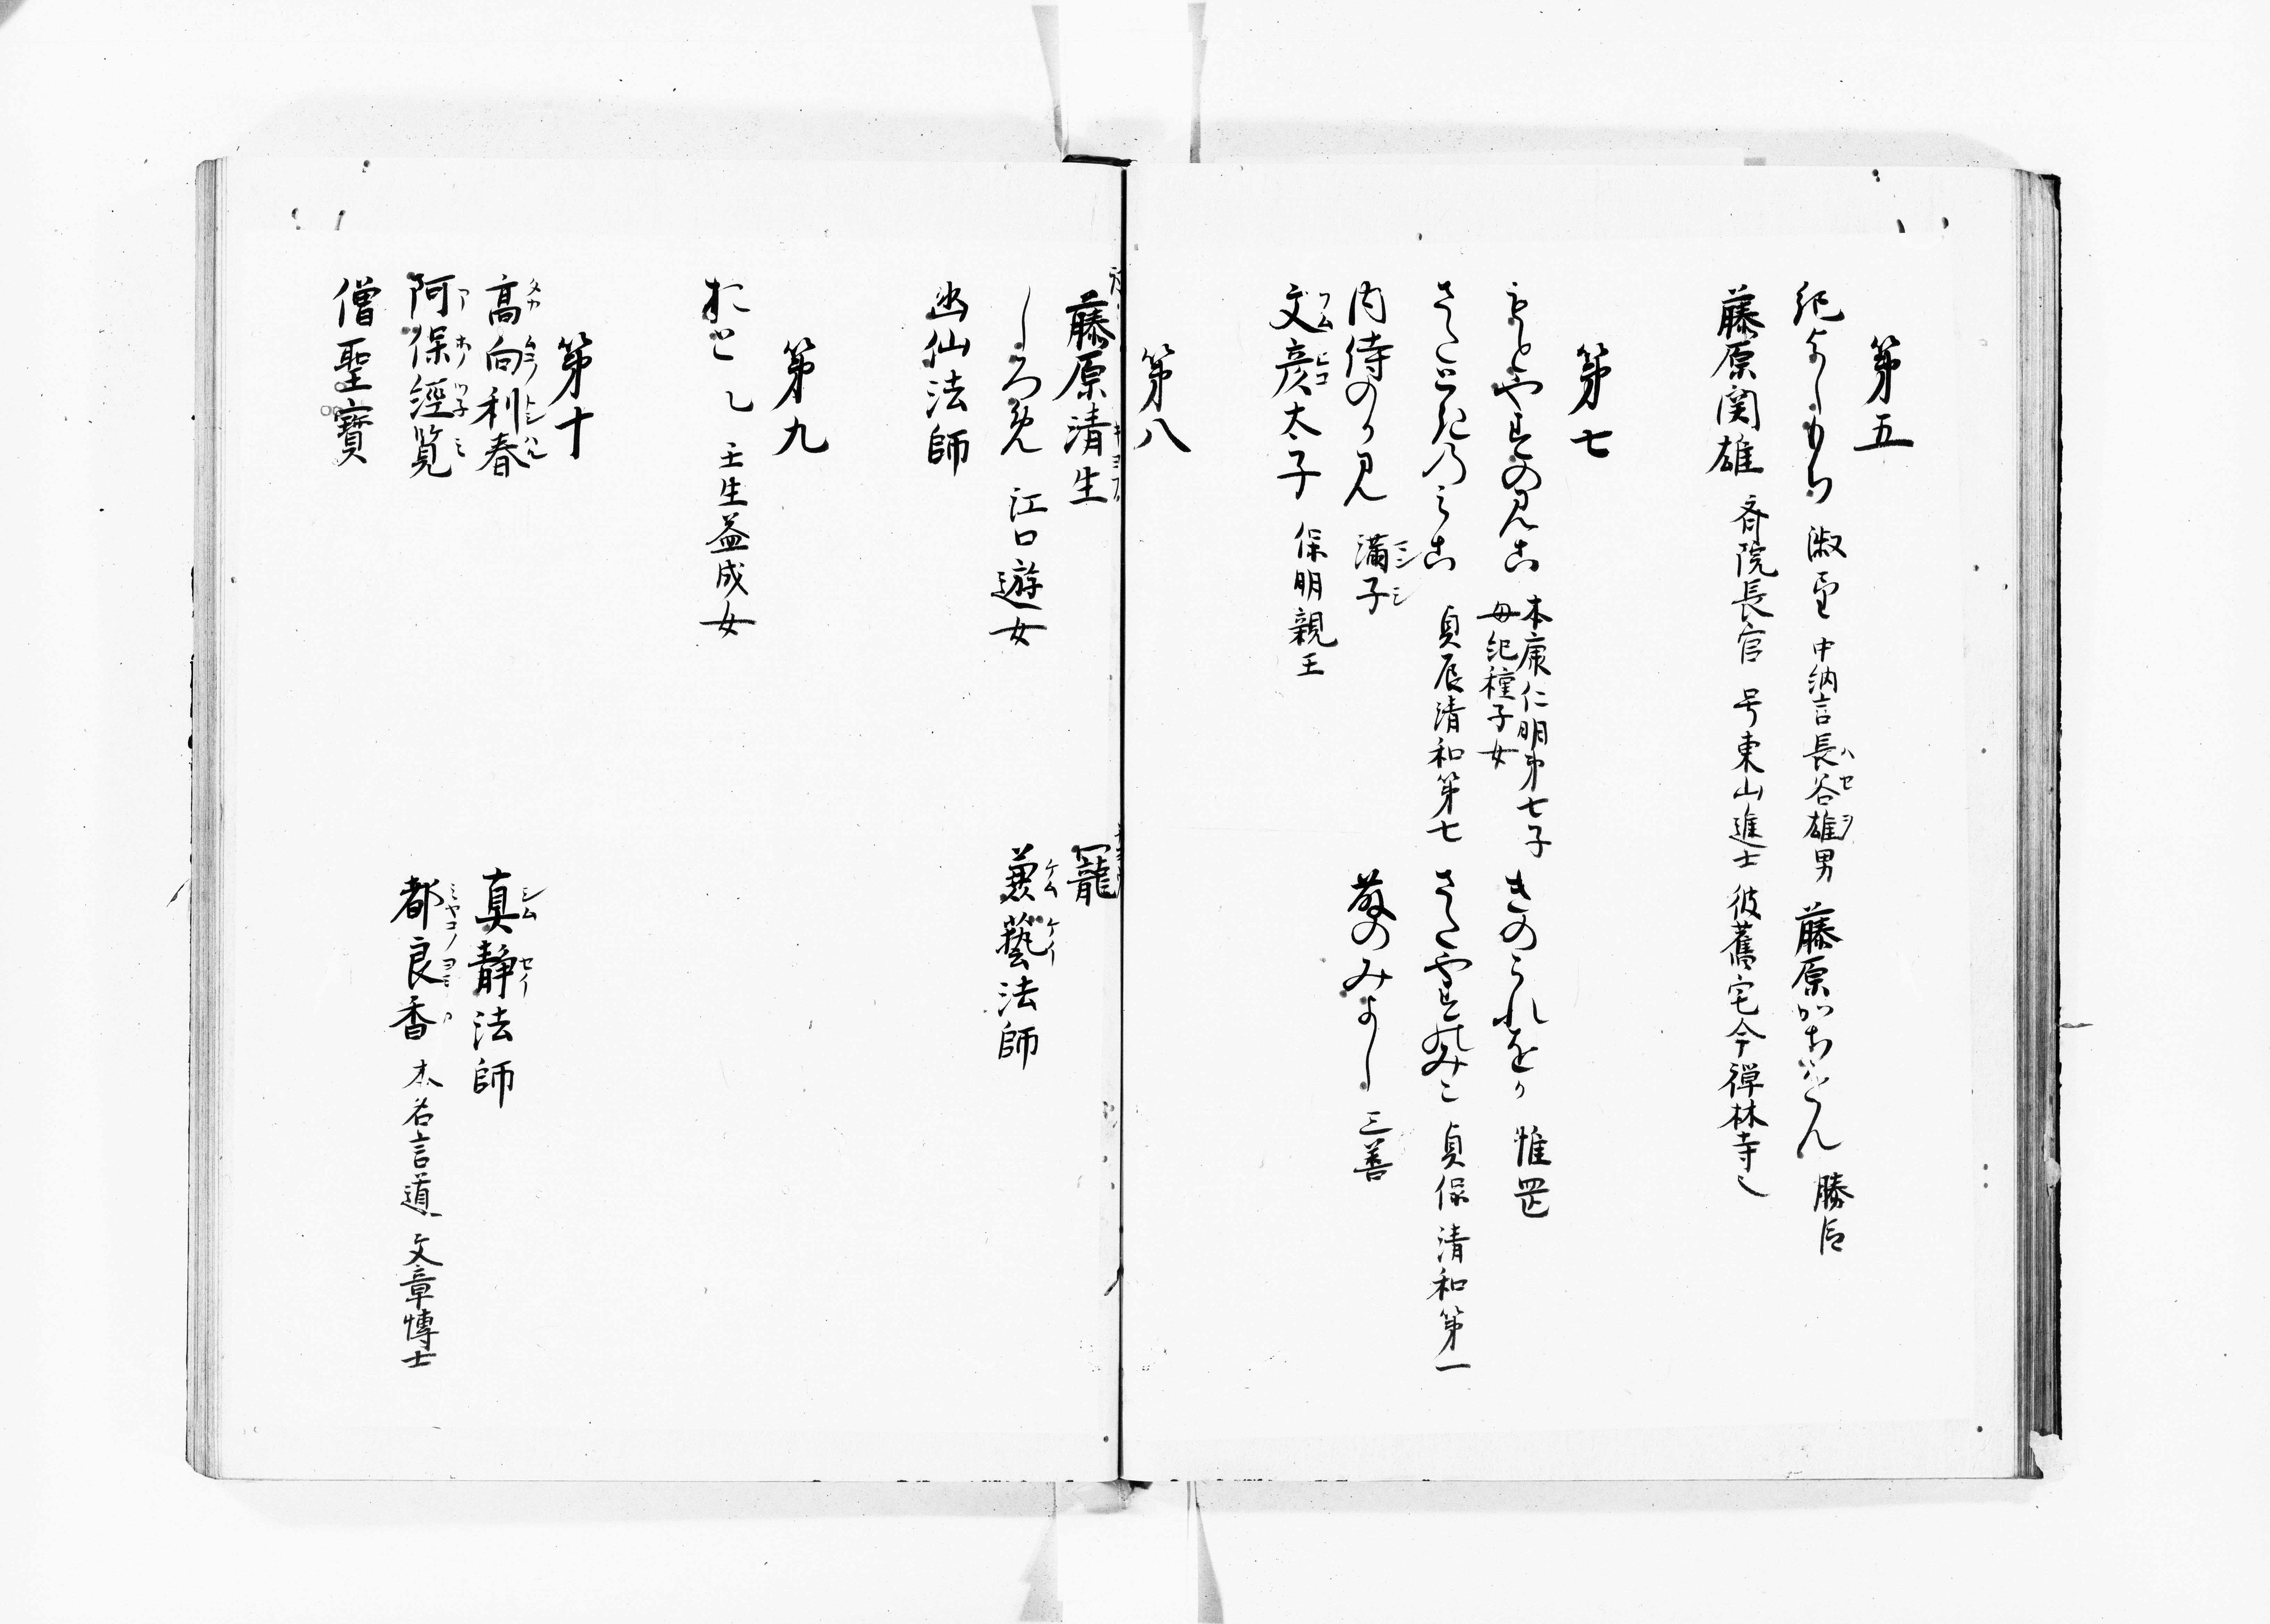 第五
紀よしもち 淑望 中納言長谷雄男 藤原かちおん 勝臣
藤原関雄 斉院長官 号東山進士 彼舊宅今禅林寺也
第七
もとやすのみこ 本康仁明第七子 きのこれをか 惟岳
母紀種子女
さたときのみこ 貞辰清和第七 さたやすのみこ 貞保清和第一
内侍のかみ 満子 藤のみよし 三善
文彦太子 保明親王
第八
藤原清生 寵
しろめ 江口遊女 兼藝法師
幽仙法師
第九
おと 乙 壬生益成女
第十
高向利春 真静法師
阿保經覧 都良香 本名言道 文章博士
僧聖寶